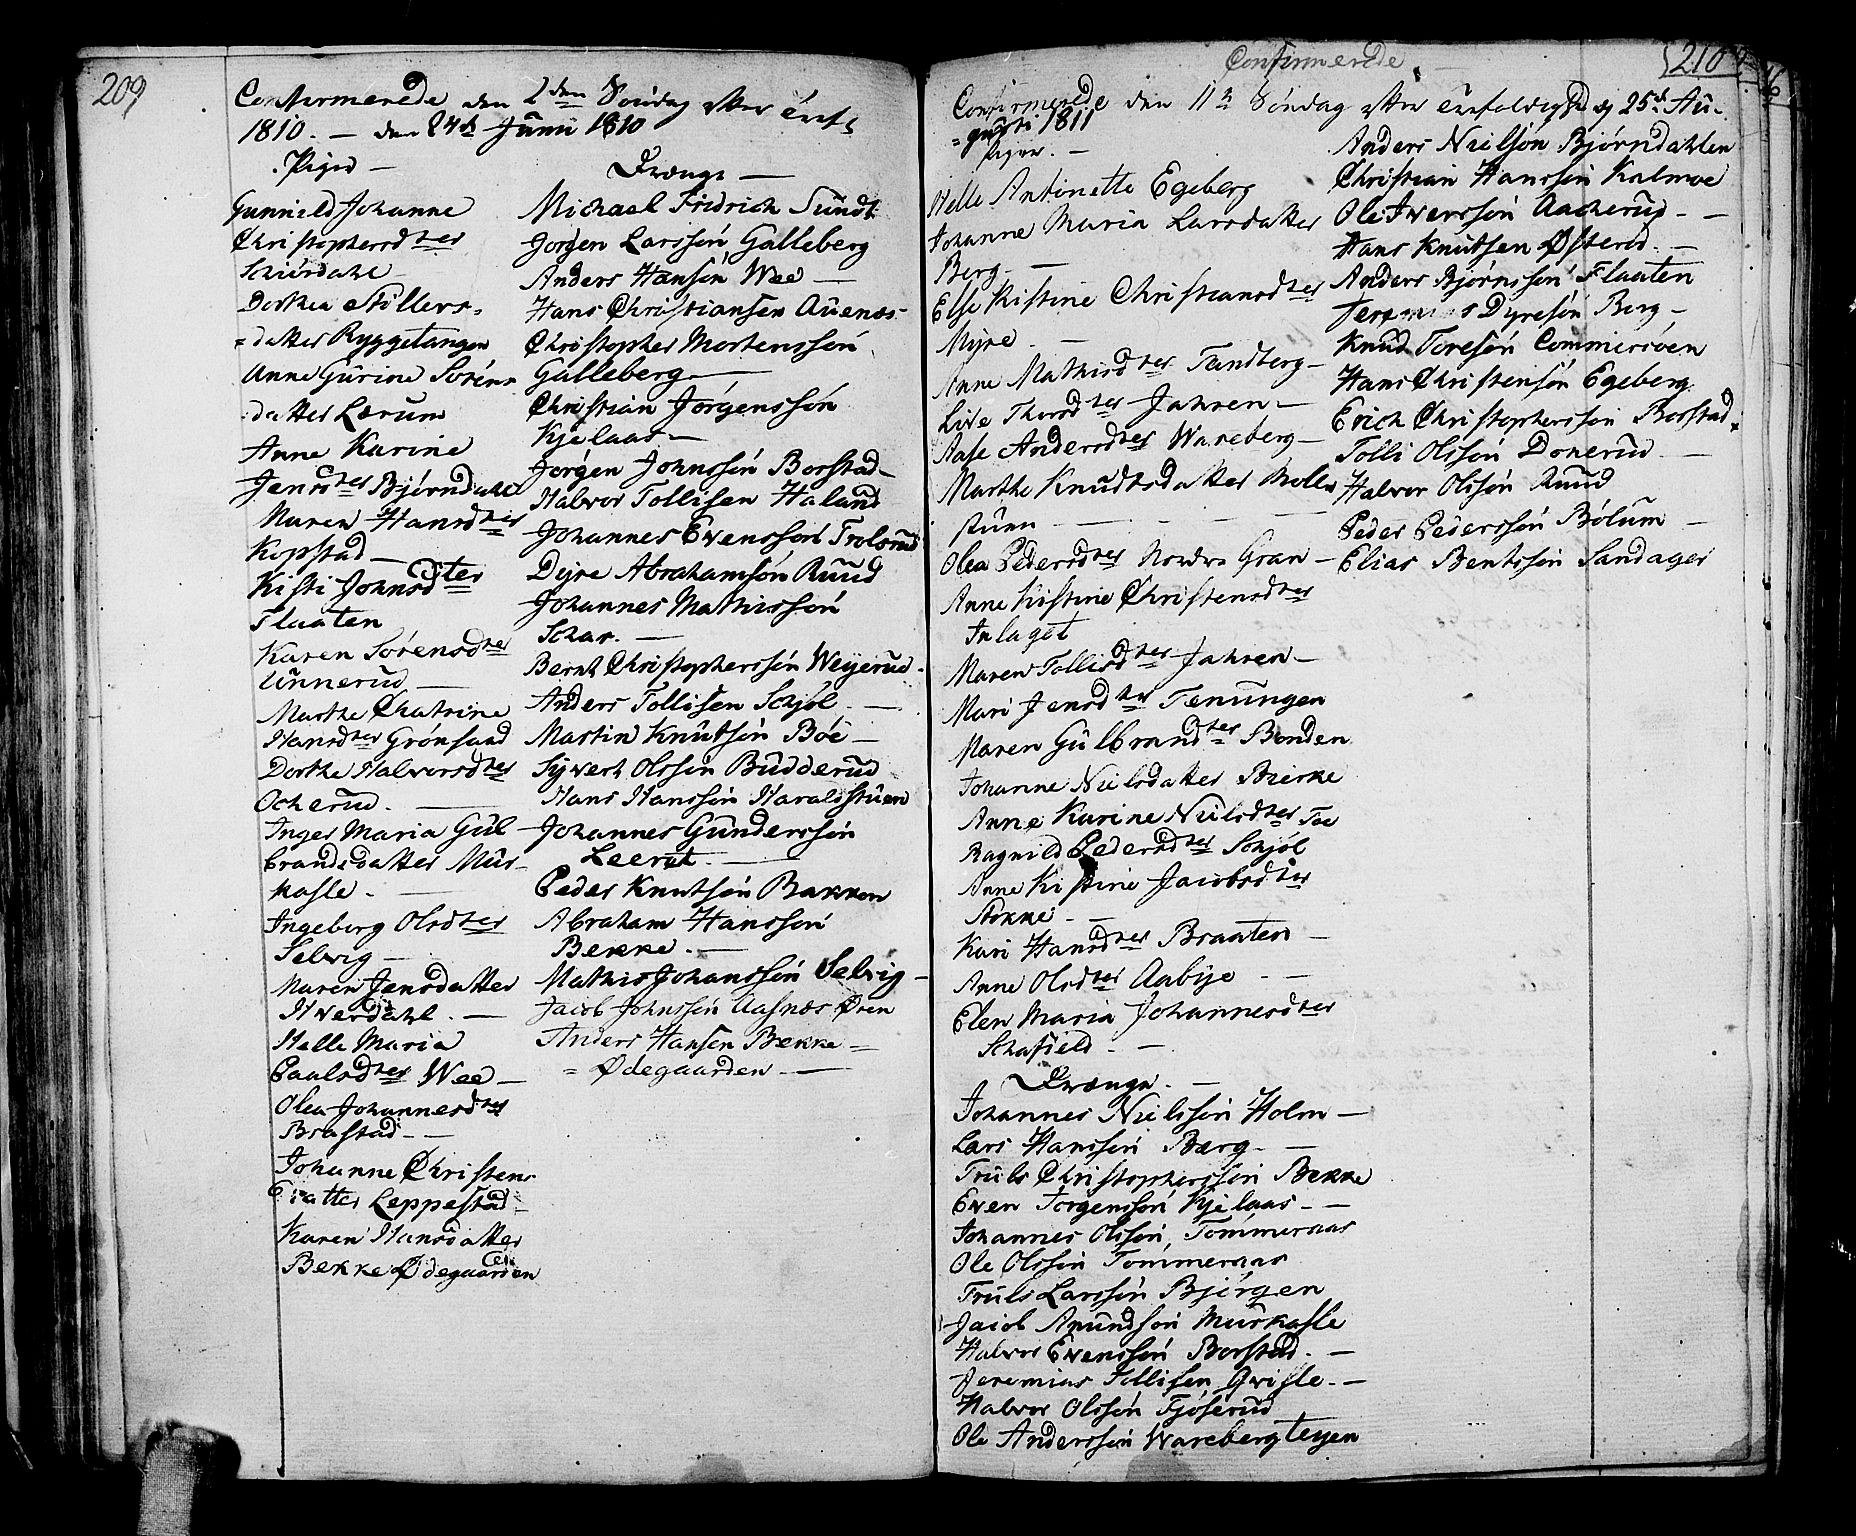 209
Confirmerede den 2den Søndag efter
1810. — den 24de Junii 1810
Piger
Gunnild Johanne
Christophersdter
Schiørdahl
Dorthea Stillers-
=datter Ryggetangen
Anne Gurine Sørens
datter Lærum
Anne Karine
Jensdter Bjørndahl
Maren Hansdter
Kopstad —
Kisti Johnsdter
Flaaten
Karen Sørensdter
Unnerud —
Marthe Chatrine
Hansdter Grønsand
Dorthe Halvorsdter
Ocherud. —
Inger Maria Gul
brandsdatter Mur-
kasle. —
Ingeborg Olsdter
Selvig —
Maren Jensdatter
Hverdahl. —
Helle Maria
Paalsdter Wee —
Olea Johannesdter
Brastad —
Johanne Christens
datter Leppestad
Karen Hansdatter
Bekke Ødegaarden
Drænge —
Michael Fridrich Sundt
Jørgen Larssøn Galleberg
Anders Hansøn Wee —
Hans Christiansen Auenæs-
Christopher Mortenssøn
Galleberg —
Christian Jørgenssøn
Kjelaas —
Jørgen Johnssøn Borstad —
Halvor Tollisen Haland
Johannes Evenssøn Trolsrud
Dyre Abrahamsøn Ruud
Johannes Mathissøn
Schar. —
Bernt Christopherssøn Weyerud.
Anders Tollisen Schjøl. —
Martin Knutsøn Bøe —
Syvert Olssøn Budderud
Hans Hanssøn Haraldstuen
Johannes Gunderssøn
Leeret. —
Peder Knutsøn Bakken
Abraham Hanssøn
Bekke. —
Mathis Johanssøn Selvig —
Jacob Johnssøn Aasnæs Øren
Anders Hansen Bekke =
= Ødegaarden —
Confirmerede
210
Confirmerede den 11te Søndag efter 25de Au-
=gusti 1811
Piger. —
Helle Antonette Egeberg
Johanne Maria Larsdatter
Berg. —
Else Kistine Christiansdter
Myre. —
Anne Mathisdter Tandberg —
Live Thorsdter Jahren —
Aase Andersdter Wareberg —
Marthe Knudtsdatter Molle
stuen — — — —
Olea Pedersdter Nordre Gran —
Anne Kistine Christensdter
Inlaget
Maren Tollisdter Jahren —
Mari Jensdter Tenungen
Maren Gulbrandsdter Bonden
Johanne Nielsdatter Bierke
Anne Karine Nielsdter Toe
Ragnild Pedersdter Schjøl
Anne Kistine Jacobsdter
Stokke. —
Kari Hansdter Braaten —
Anne Olsdter Aabye —
Elen Maria Johannesdter
Schafield. —
Drænge. —
Johannes Nielssøn Holm —
Lars Hanssøn Berg. —
Truls Christopherssøn Bekke
Even Jørgenssøn Kjelaas. —
Johannes Olssøn Tommeraas
Ole Olssøn Tommeraas
Truls Larssøn Bjørgen
Jacob Amundsøn Murkasle
Halvor Evenssøn Borstad. —
Jeremias Tollisen Qvisle. —
Halvor Olssøn Fjøserud
Ole Anderssøn Wareberg teyen
Anders Nielsøn Bjørndahlen
Christian Hanssøn Kalmoe
Ole Iverssøn Aacherud. —
Hans Knutsen Østerud. —
Anders Bjørnssøn Flaaten
Jeremias Dyresøn Berg —
Knud Toresøn Commersøen
Hans Christensøn Egeberg
Erich Christopherssøn Borstad.
Tolli Olssøn Donerud —
Halvor Olssøn Ruud
Peder Pederssøn Bølum —
Elias Bentssøn Sandager